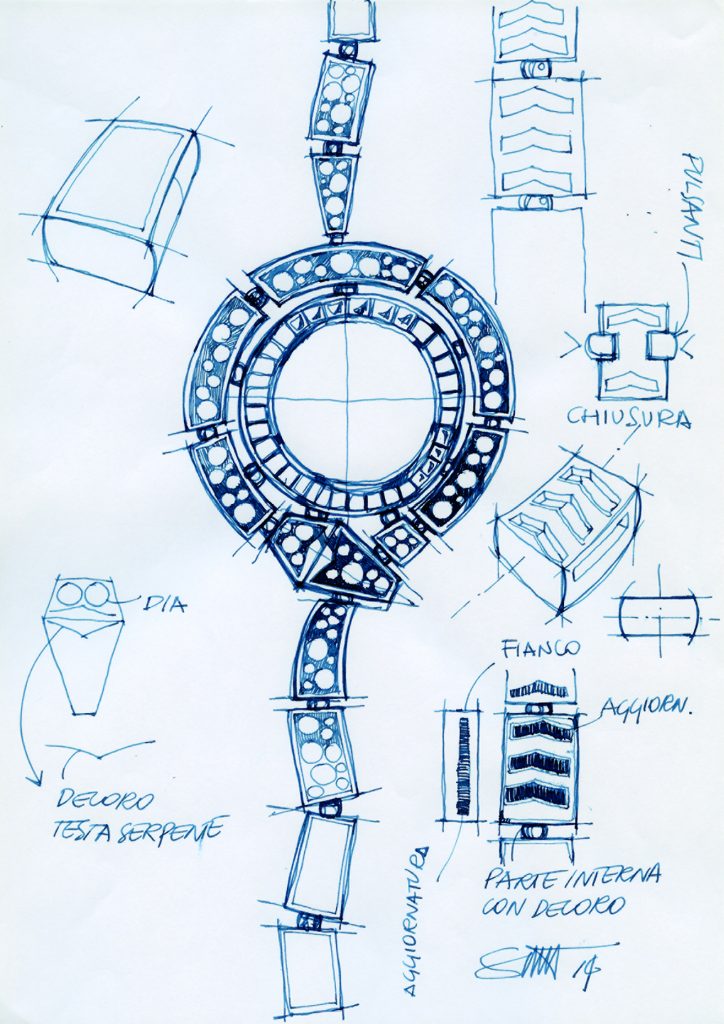 PULSANTI
CHIUSURA
DIA
FIANCO
AGGIORN.
DECORO
TESTA SERPENTE
AGGIORNATURA
PARTE INTERNA
CON DECORO
14